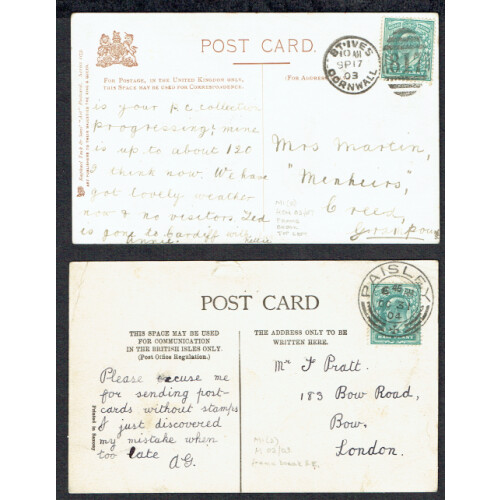 POST CARD.
FOR POSTAGE, IN THE UNITED KINGDOM ONLY,
THIS SPACE MAY BE USED FOR CORRESPONDENCE.
(FOR ADDRESS
ST. IVES
10 AM
SP 17
03
CORNWALL
is your p.c. collection
progressing? mine
is up to about 120
I think now. We have
got lovely weather
now & no visitors. Ted
is gone to Cardiff with
Annie. Kellie
Mrs Martin,
"Menheirs",
Creed,
Grampound
PAISLEY
04
POST CARD
THIS SPACE MAY BE USED
FOR COMMUNICATION
IN THE BRITISH ISLES ONLY.
(Post Office Regulation.)
THE ADDRESS ONLY TO BE
WRITTEN HERE.
Please excuse me
for sending post-
cards without stamps
I just discovered
my mistake when
too late
A.G.
Printed in Saxony
Mr F Pratt.
183 Bow Road,
Bow.
London.